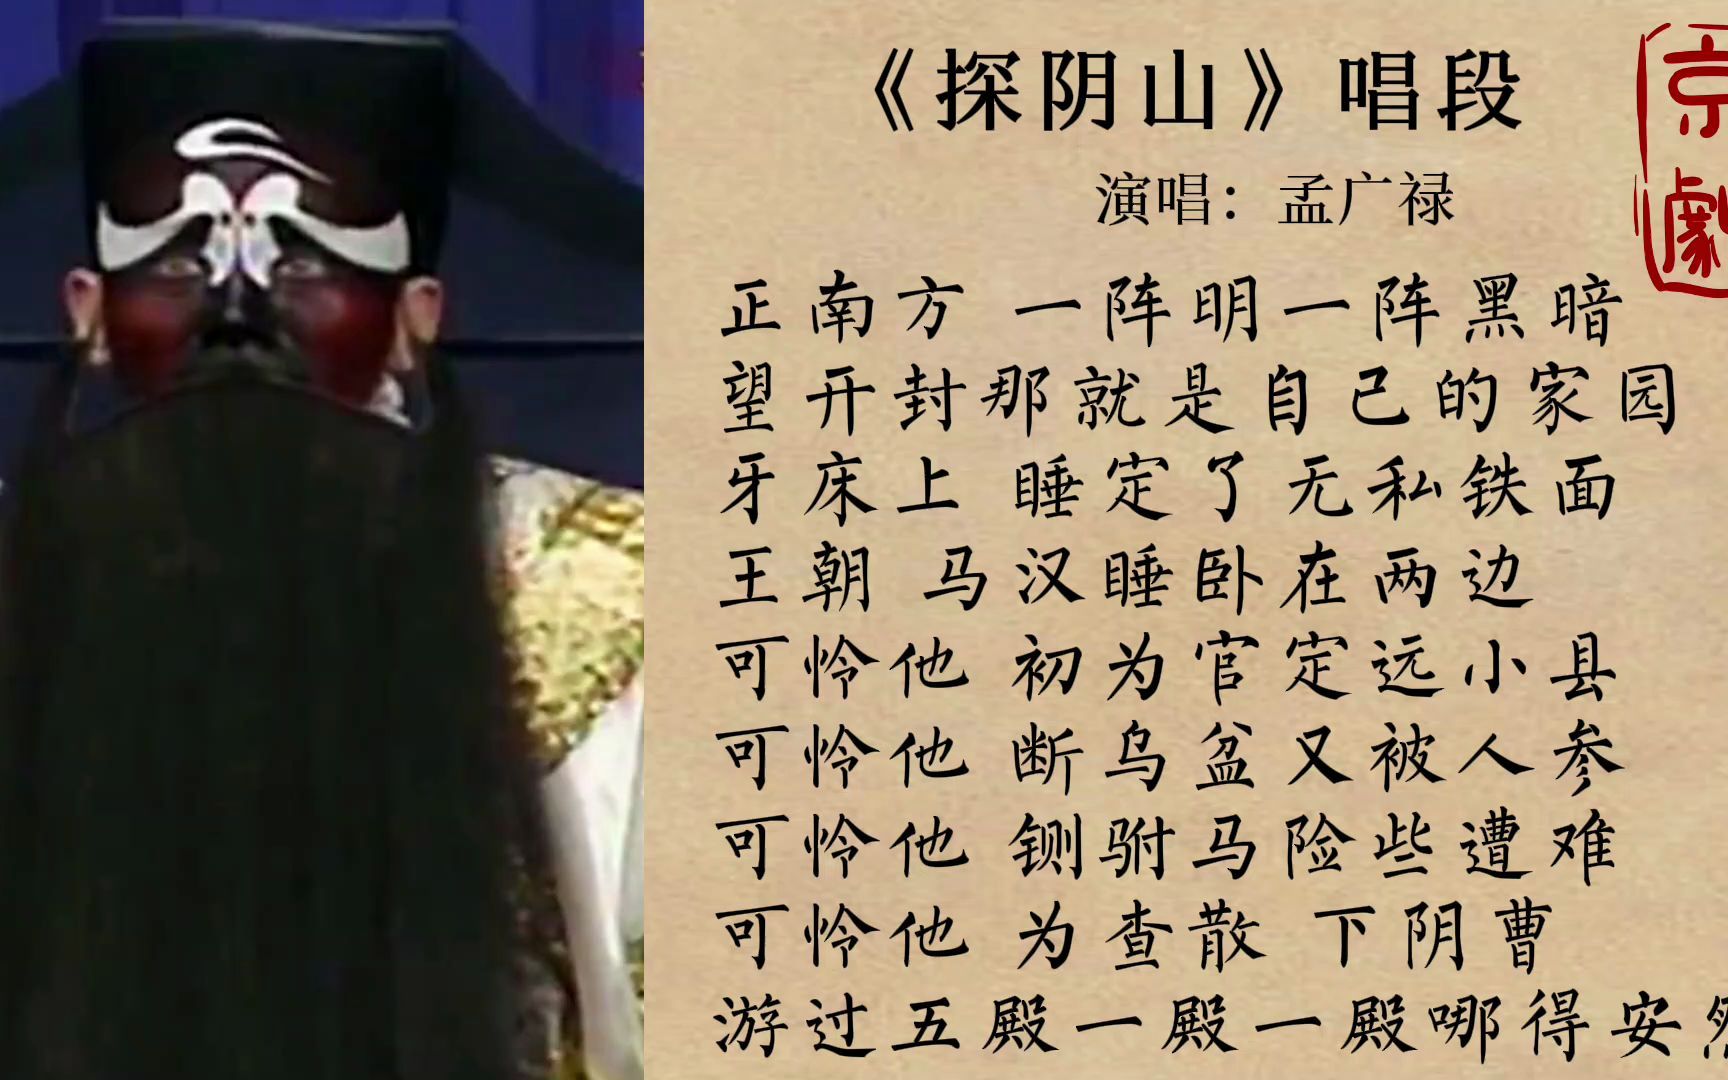 《探阴山》唱段
演唱：孟广禄
京劇
正南方 一阵明一阵黑暗
望开封那就是自己的家园
牙床上 睡定了无私铁面
王朝 马汉睡卧在两边
可怜他 初为官定远小县
可怜他 断乌盆又被人参
可怜他 铡驸马险些遭难
可怜他 为查散 下阴曹
游过五殿一殿一殿哪得安然